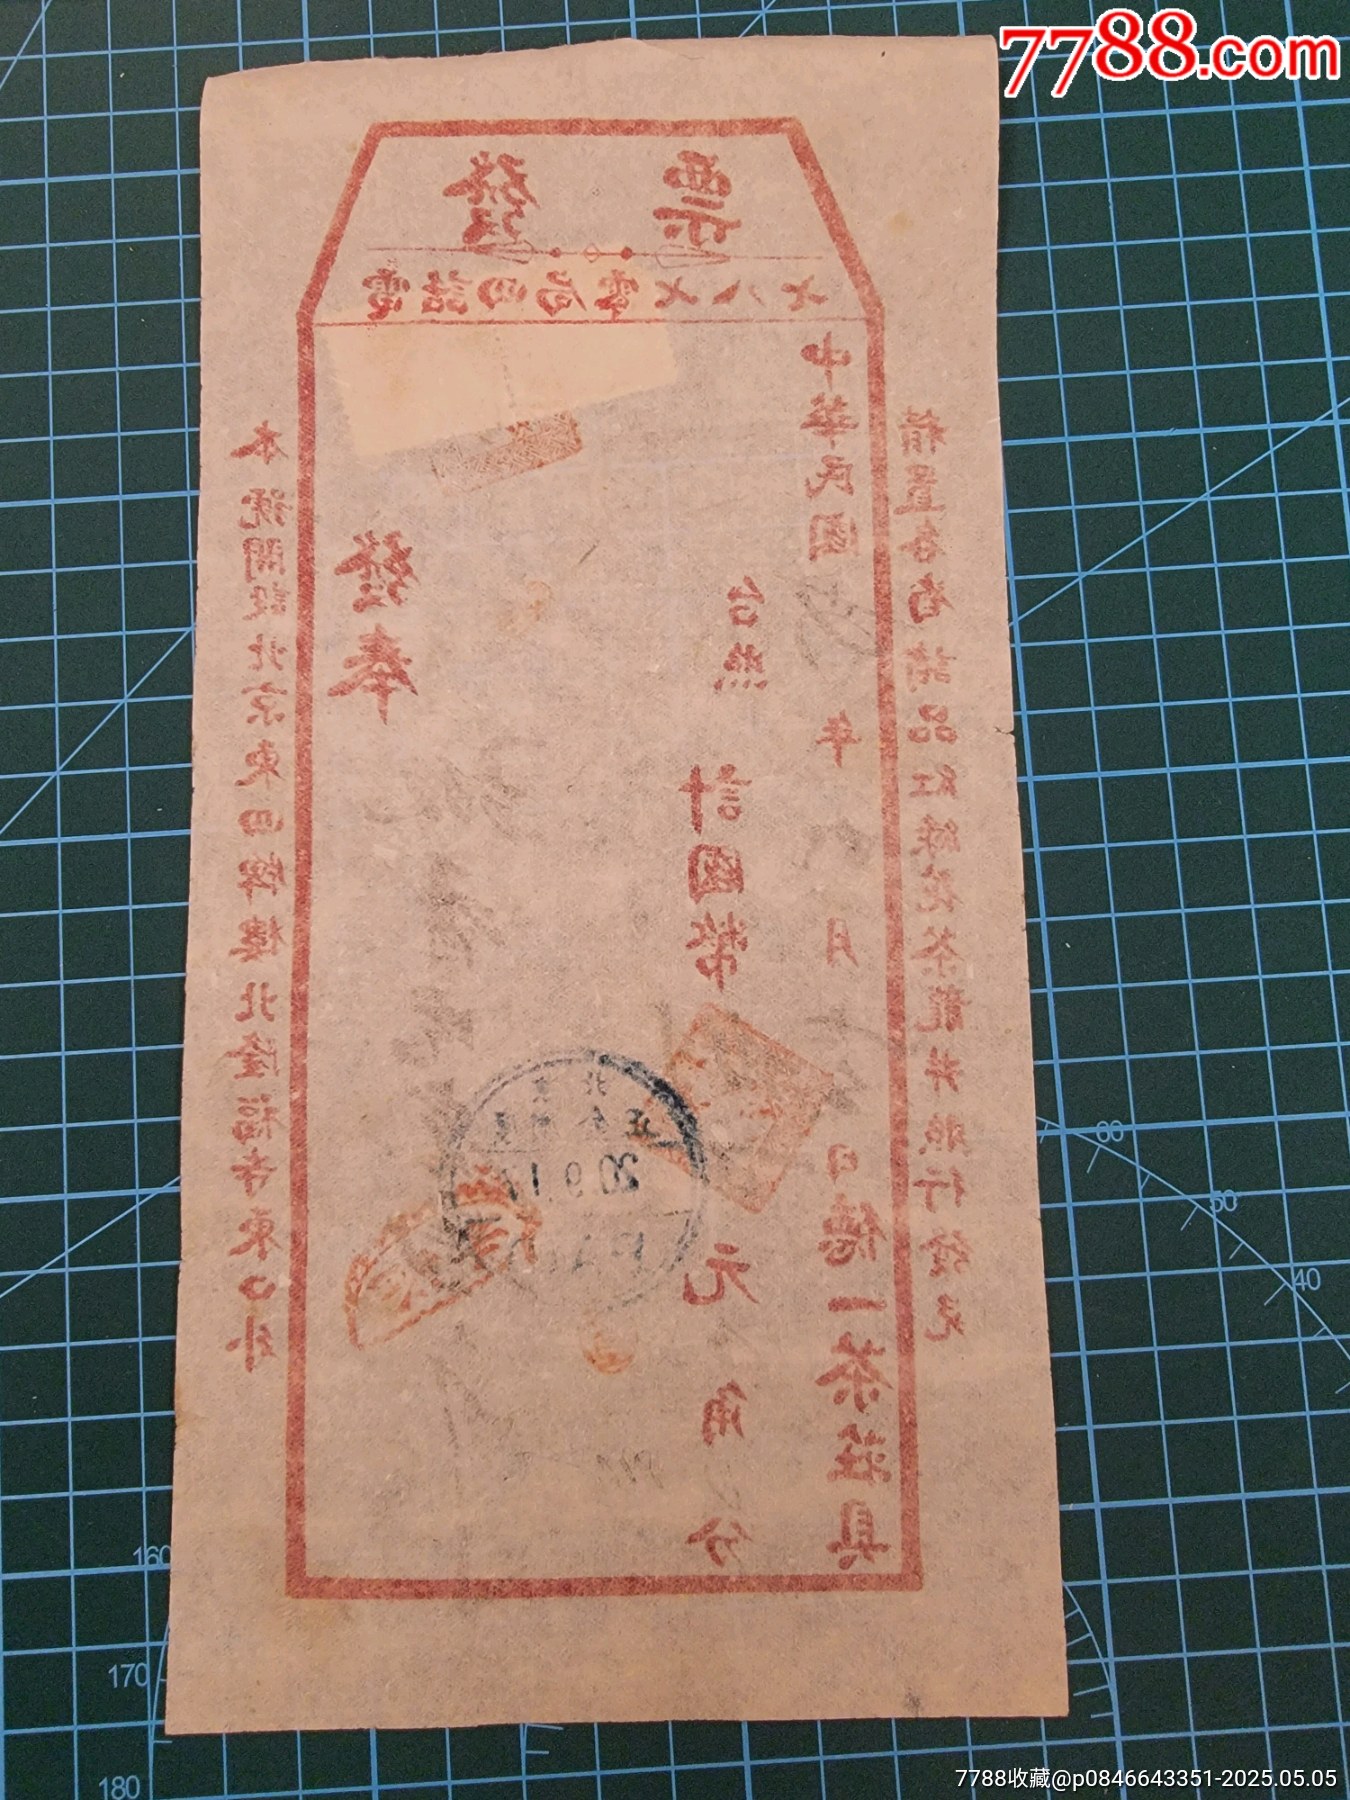 7788.com
發票
電話四局零七八七
本號開設北京東四牌樓北隆福寺東口外
發奉
台照
計國幣 元 角 分
中華民國 年 月 日 德一茶莊具
精置各省諸品紅綠花茶龍井照行發兌
北京
60
50
40
160
170
180
7788收藏@p0846643351-2025.05.05